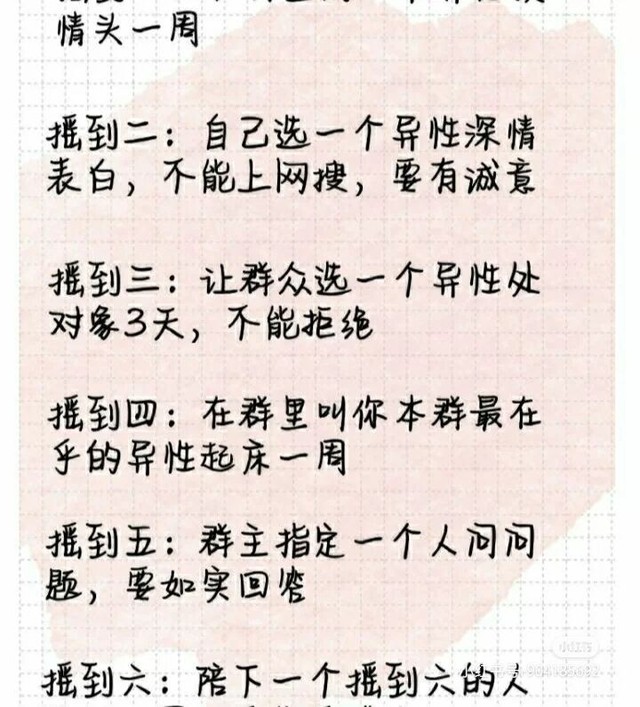 情头一周
摇到二：自己选一个异性深情
表白，不能上网搜，要有诚意
摇到三：让群众选一个异性处
对象3天，不能拒绝
摇到四：在群里叫你本群最在
乎的异性起床一周
摇到五：群主指定一个人问问
题，要如实回答
小红书
摇到六：陪下一个摇到六的人